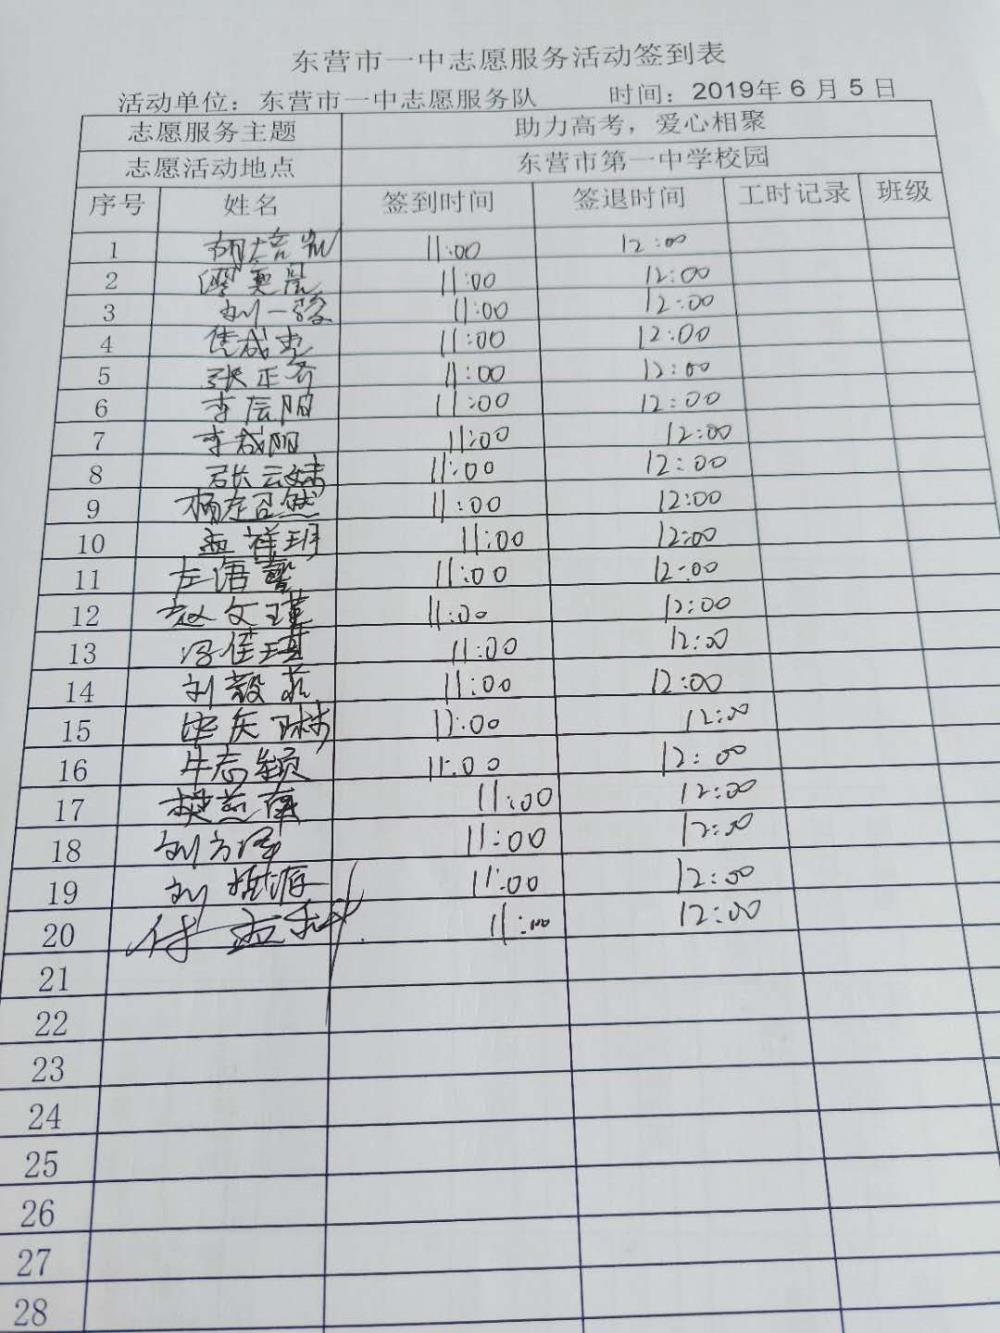 东营市一中志愿服务活动签到表
活动单位：东营市一中志愿服务队 时间：2019年 6 月 5 日
志愿服务主题 助力高考，爱心相聚
志愿活动地点 东营市第一中学校园
序号 姓名 签到时间 签退时间 工时记录 班级
1 11:00 12:00
2 11:00 12:00
3 刘一 11:00 12:00
4 焦成 11:00 12:00
5 张正 11:00 12:00
6 李辰阳 11:00 12:00
7 李 阳 11:00 12:00
8 张云 11:00 12:00
9 杨 然 11:00 12:00
10 孟祥玥 11:00 12:00
11 左语 11:00 12:00
12 赵文瑾 11:00 12:00
13 冯佳琪 11:00 12:00
14 刘 11:00 12:00
15 11:00 12:00
16 牛志颖 11:00 12:00
17 11:00 12:00
18 刘方泽 11:00 12:00
19 刘 源 11:00 12:00
20 付孟 11:00 12:00
21
22
23
24
25
26
27
28